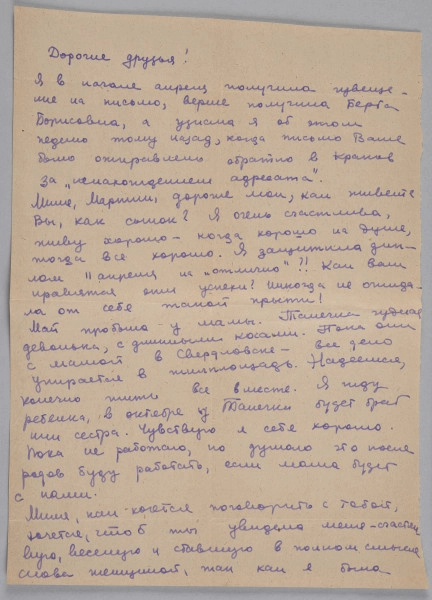 Дорогие друзья!
Я в начале апреля получила извеще-
ние на письмо, вернее получила Берта
Борисовна, а узнала я об этом
неделю тому назад, когда письмо Ваше
было отправлено обратно в Краков
за „ненахождением адресата".
Миля, дорогие мои, как живете
Вы, как сынок? Я очень счастлива,
живу хорошо - когда хорошо на душе,
тогда все хорошо. Я защитила дип-
лом 11 апреля на „отлично"!! Как вам
нравятся эти успехи? Никогда не ожида-
ла от себе такой прыти!
Май пробыла у мамы. Танечка чудная
девочка, с длинными косами. Пока они
с мамой в Свердловске - все дело
упирается в жилплощадь. Надеемся,
конечно жить все вместе. Я жду
ребенка, в октябре у Танечки будет брат
или сестра. Чувствую я себе хорошо.
Пока не работаю, но думаю это после
родов буду работать, если мама будет
с нами.
Миля, как хочется поговорить с тобой,
хочется, чтоб ты увидела меня - счастли
вую, веселую и ставшую в полном смысле
слова женщиной, так как я была